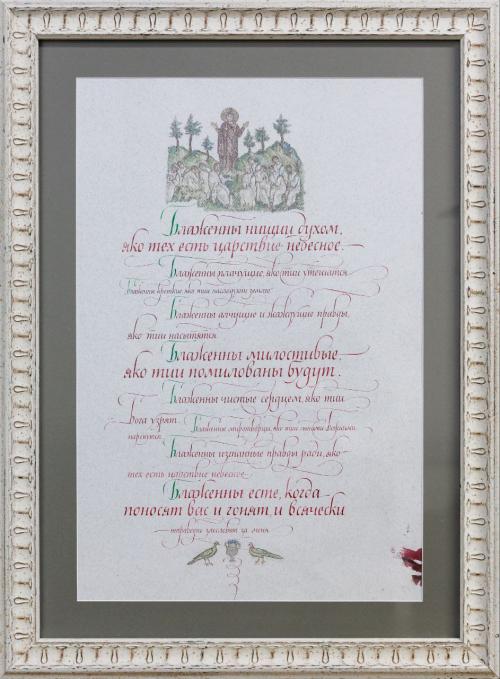 Блаженны нищии духом,
яко тех есть царствие небесное
Блаженны плачущие, яко тии утешатся
Блаженни кроткие, яко тии наследуют землю
Блаженны алчущие и жаждущие правды,
яко тии насытятся
Блаженны милостивые,
яко тии помилованы будут.
Блаженны чистые сердцем, яко тии
Бога узрят
Блаженны миротворцы, яко тии сынами Божиими
нарекутся
Блаженны изгнанные правды ради, яко
тех есть царствие небесное
Блаженны есте, когда
поносят вас и гонят, и всячески
неправедно злословят за меня